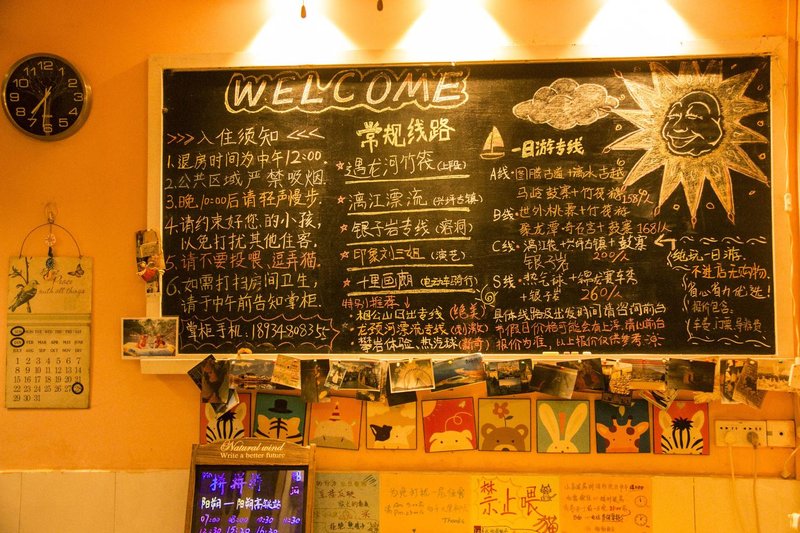 WELCOME
>>> 入住须知 <<<
1.退房时间为中午12:00.
2.公共区域严禁吸烟.
3.晚10:00后请轻声慢步.
4.请约束好您的小孩,
以免打扰其他住客.
5.请不要投喂、逗弄猫.
6.如需打扫房间卫生,
请于中午前告知掌柜.
掌柜手机. 18934808355
常规线路
遇龙河竹筏(上段)
漓江漂流(兴坪古镇)
银子岩专线(溶洞)
印象刘三姐(演艺)
十里画廊(电动车骑行)
特别推荐↓
相公山日出专线(绝美)
龙颈河漂流专线(刺激)
攀岩体验、热汽球(新奇)
一日游专线
A线·图腾古道+漓水古越
马岭鼓寨+竹筏游 158/人
B线·世外桃源+竹筏游
聚龙潭·奇石宫+鼓寨 168/人
C线·漓江筏+兴坪古镇+鼓寨
银子岩 200/人
S线·热气球+
+银子岩 260/人
具体线路及出发时间请当询前台
节假日价格可能会有上浮,请以前台
报价为准,以上报价仅供参考
纯玩一日游.
不进店无购物.
省心省力优选!
报价包含:
车费、门票、导游费
Peace
with all things
Natural wind
Write a better future
拼拼拼
阳朔—阳朔高铁站
禁止喂猫
Thanks